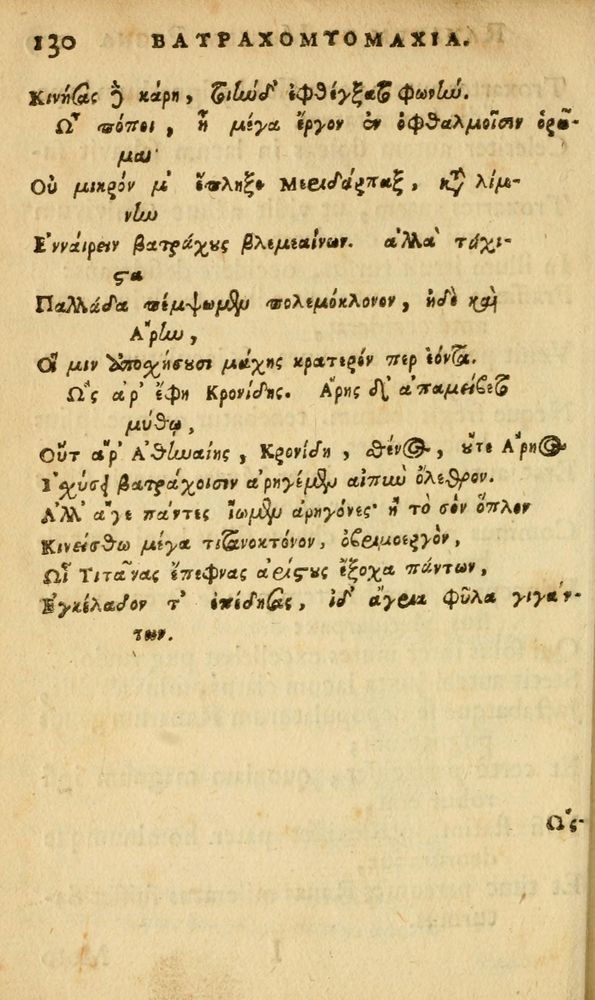 130 ΒΑΤΡΑΧΟΜΥΟΜΑΧΙΑ.
Κινήσας δὲ κάρη, τοιὴνδ' ἐφθέγξατο φωνήν.
Ω῏ πόποι, ἦ μέγα ἔργον ἐν ὀφθαλμοῖσιν ὁρῶ-
μαι·
Οὐ μικρόν μ' ἔπληξε Μεριδάρπαξ, κατὰ λίμ-
νην
Ε᾿ννάιρειν βατράχους βλεμεαίνων. ἀλλὰ τάχι-
στα
Παλλάδα πέμψωμεν πολεμόκλονον, ἠδὲ καὶ
Α῎ρην,
Οἵ μιν ἀποσχήσουσι μάχης κρατερόν περ ἐόντα.
Ω῝ς ἀρ' ἔφη Κρονίδης. Α῎ρης δ' ἀπαμείβετο
μύθῳ,
Οὔτ' ἂρ' Α᾿θηναίης, Κρονίδη, σθένος, οὔτε Α῎ρηος
Ι᾿χύσει βατράχοισιν ἀρηγέμεν αἰπὺν ὄλεθρον.
Α᾿λλ' ἄγε πάντες ἴωμεν ἀρηγόνες· ἢ τὸ σὸν ὅπλον
Κινείσθω μέγα τιτανοκτόνον, ὀβριμοεργὸν,
Ωἷ Τιτᾶνας ἔπεφνας ἀρίστους ἔξοχα πάντων,
Ε᾿γκέλαδον τ' ἐπέδησας, ἰδ' ἄγρια φῦλα γιγάν-
των.
Ω῝ς·